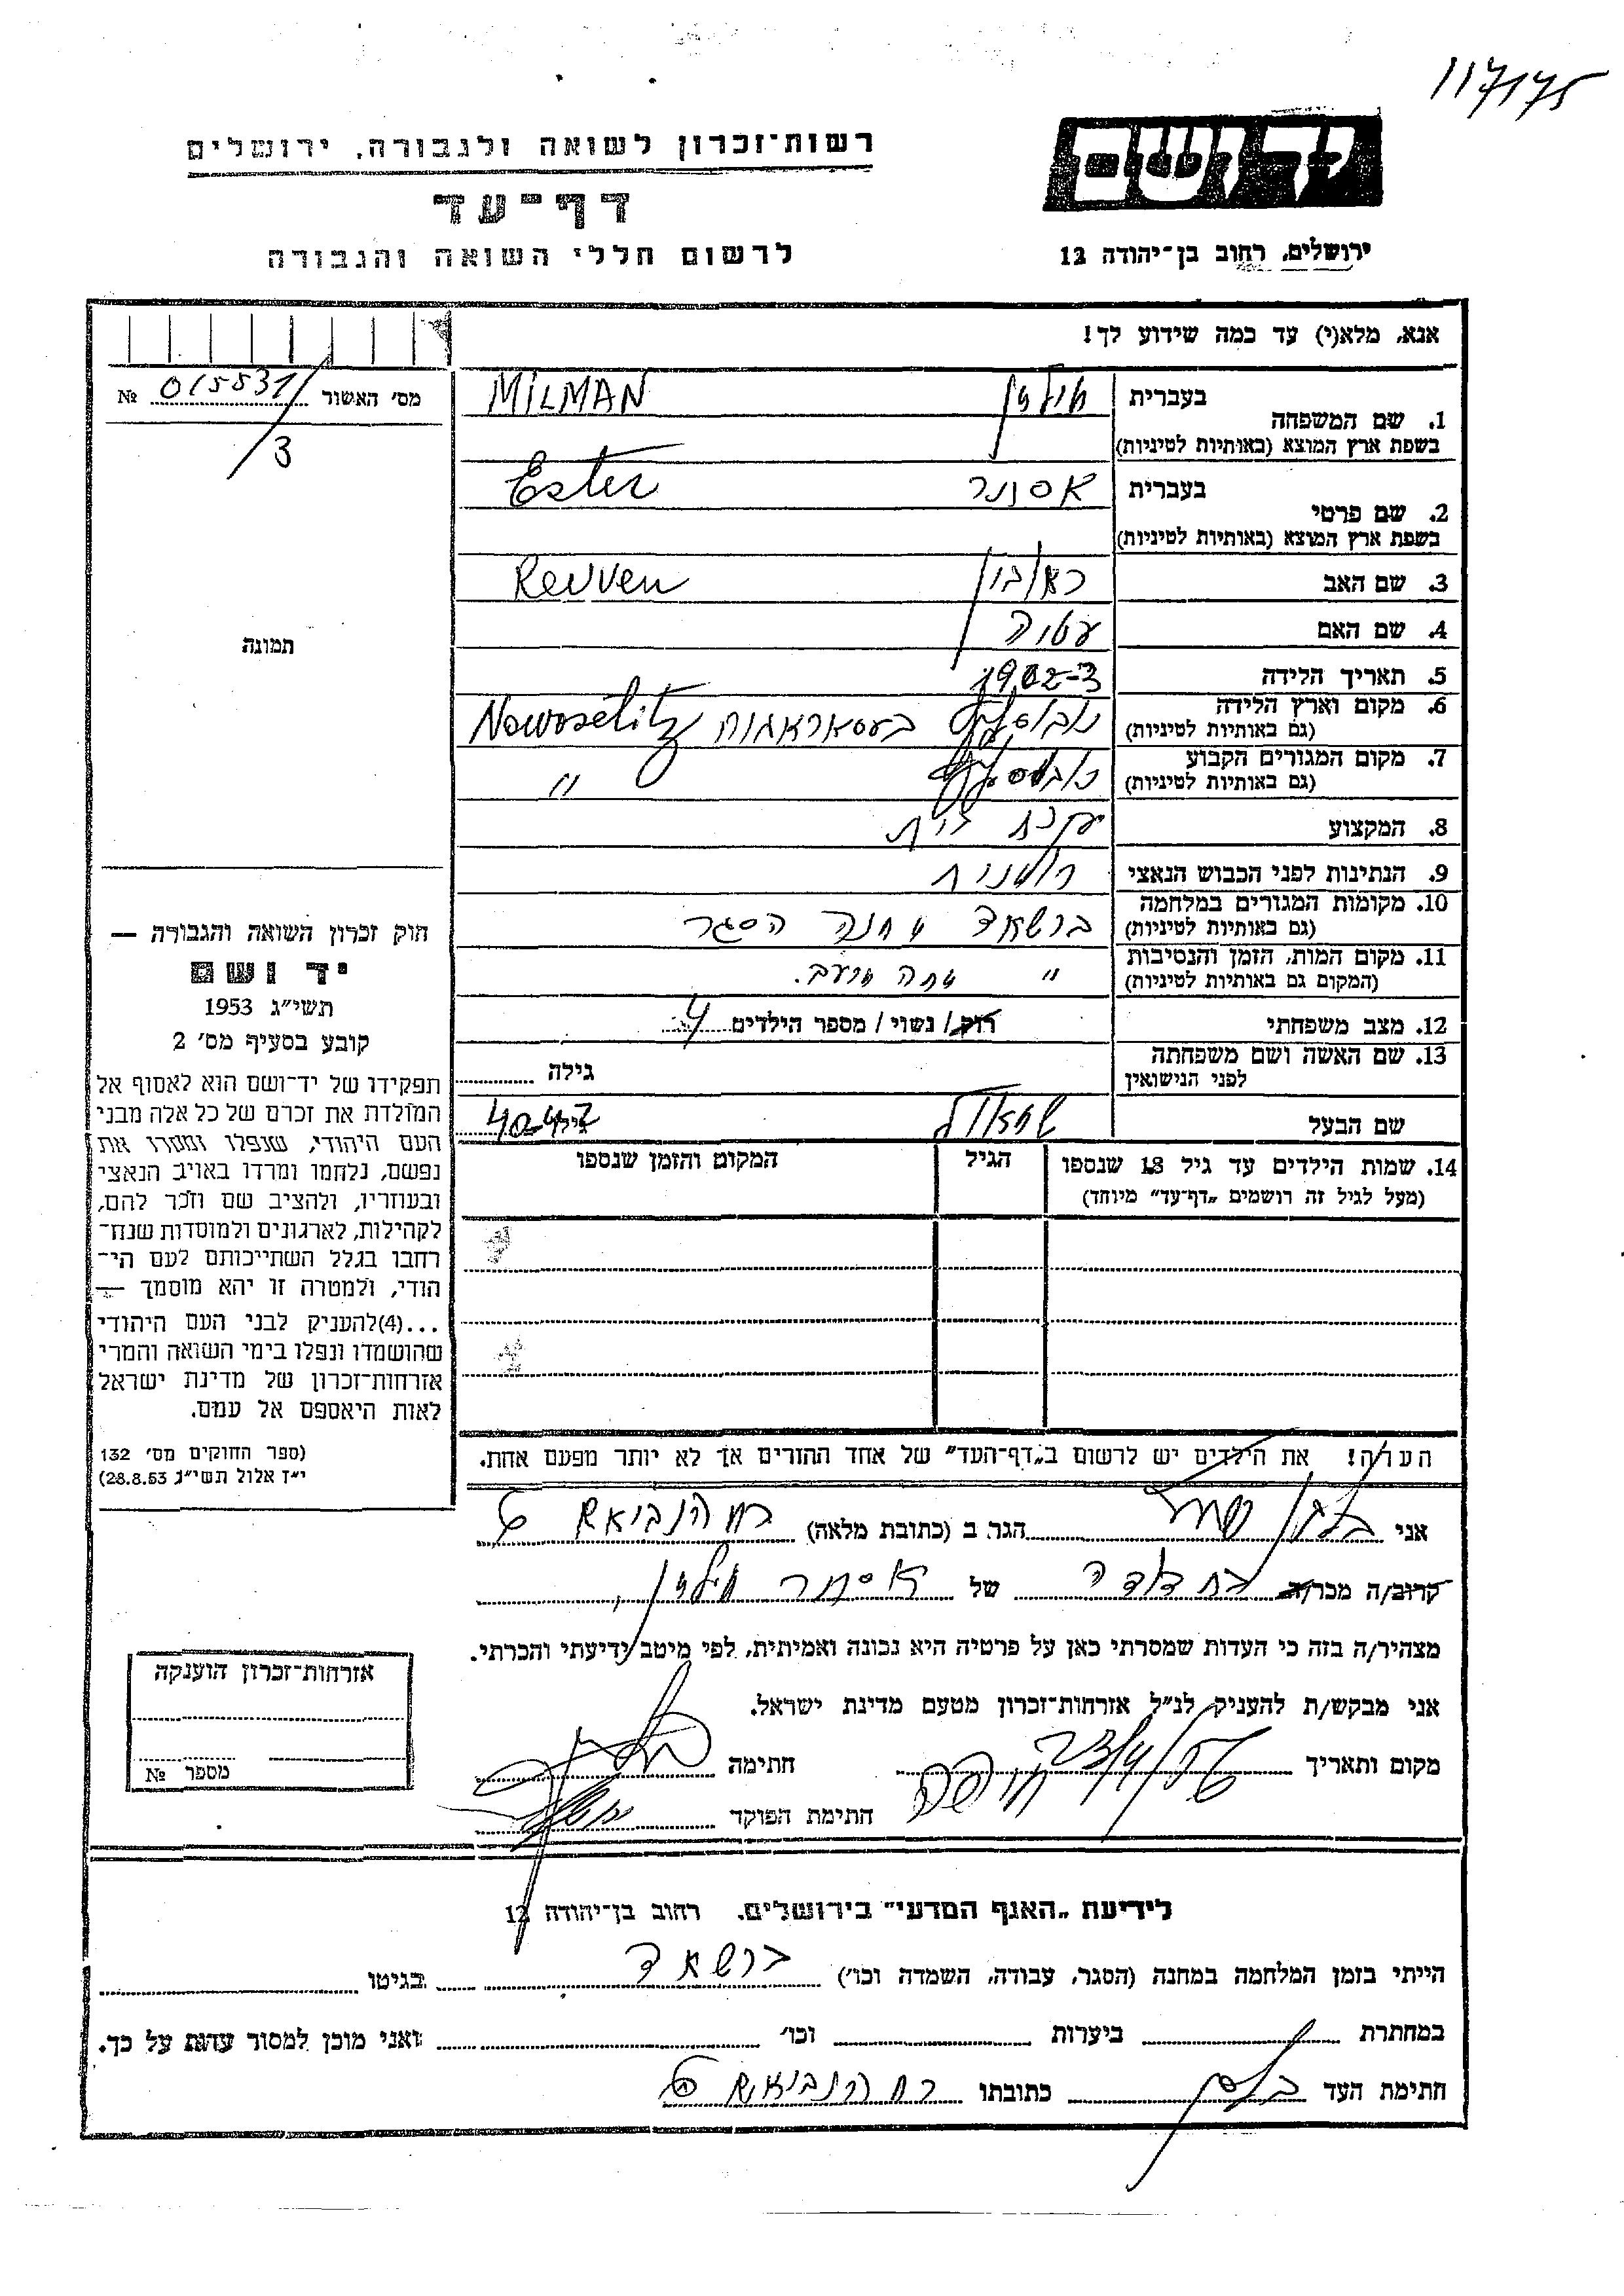 117175
רשות־זכרון לשואה ולגבורה, ירושלים
יד ושם
דף־עד
לרשום חללי השואה והגבורה
ירושלים, רחוב בן־יהודה 12
אנא, מלא(י) עד כמה שידוע לך!
מס׳ האשור 015531 №
3
תמונה
1. שם המשפחה בעברית מילמן MILMAN
בשפת ארץ המוצא (באותיות לטיניות)
2. שם פרטי בעברית אסתר Ester
בשפת ארץ המוצא (באותיות לטיניות)
3. שם האב ראובן Reuven
4. שם האם
5. תאריך הלידה 1902-3
6. מקום וארץ הלידה Nowoselitz
(גם באותיות לטיניות)
7. מקום המגורים הקבוע "
(גם באותיות לטיניות)
8. המקצוע עקרת בית
9. הנתינות לפני הכבוש הנאצי רומנית
10. מקומות המגורים במלחמה ברשאד מחנה הסגר
(גם באותיות לטיניות)
11. מקום המות, הזמן והנסיבות " מתה מרעב.
(המקום גם באותיות לטיניות)
12. מצב משפחתי רוק/ נשוי/ מספר הילדים 4
13. שם האשה ושם משפחתה
לפני הנישואין גילה
שם הבעל שמואל גילו 40-42
14. שמות הילדים עד גיל 18 שנספו הגיל המקום והזמן שנספו
(מעל לגיל זה רושמים „דף־עד״ מיוחד)
חוק זכרון השואה והגבורה —
יד ושם
תשי״ג 1953
קובע בסעיף מס׳ 2
תפקידו של יד־ושם הוא לאסוף אל
המולדת את זכרם של כל אלה מבני
העם היהודי, שנפלו ומסרו את
נפשם, נלחמו ומרדו באויב הנאצי
ובעוזריו, ולהציב שם וזכר להם,
לקהילות, לארגונים ולמוסדות שנח־
רבו בגלל השתייכותם לעם הי־
הודי, ולמטרה זו יהא מוסמך —
...(4)להעניק לבני העם היהודי
שהושמדו ונפלו בימי השואה והמרי
אזרחות־זכרון של מדינת ישראל
לאות היאספם אל עמם.
(ספר החוקים מס׳ 132
י״ז אלול תשי״ג 28.8.53)
הערה! את הילדים יש לרשום ב„דף־העד״ של אחד ההורים אך לא יותר מפעם אחת.
אני הגר ב (כתובת מלאה) רח הנביאים 6
קרוב/ה מכר/ה בת דודה של אסתר מילמן
מצהיר/ה בזה כי העדות שמסרתי כאן על פרטיה היא נכונה ואמיתית, לפי מיטב ידיעתי והכרתי.
אני מבקש/ת להעניק לנ״ל אזרחות־זכרון מטעם מדינת ישראל.
מקום ותאריך חיפה 23/4/56 חתימה
חתימת הפוקד
אזרחות־זכרון הוענקה
מספר №
לידיעת „האגף המדעי״ בירושלים, רחוב בן־יהודה 12
הייתי בזמן המלחמה במחנה (הסגר, עבודה, השמדה וכו׳) ברשאד בגיטו
במחתרת ביערות וכו׳ ואני מוכן למסור עדות על כך.
חתימת העד כתובתו רח הנביאים 6